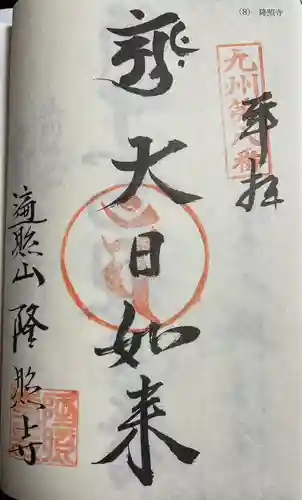 (8) 隆照寺
九州第八番
奉拝
大日如来
遍照山 隆照寺